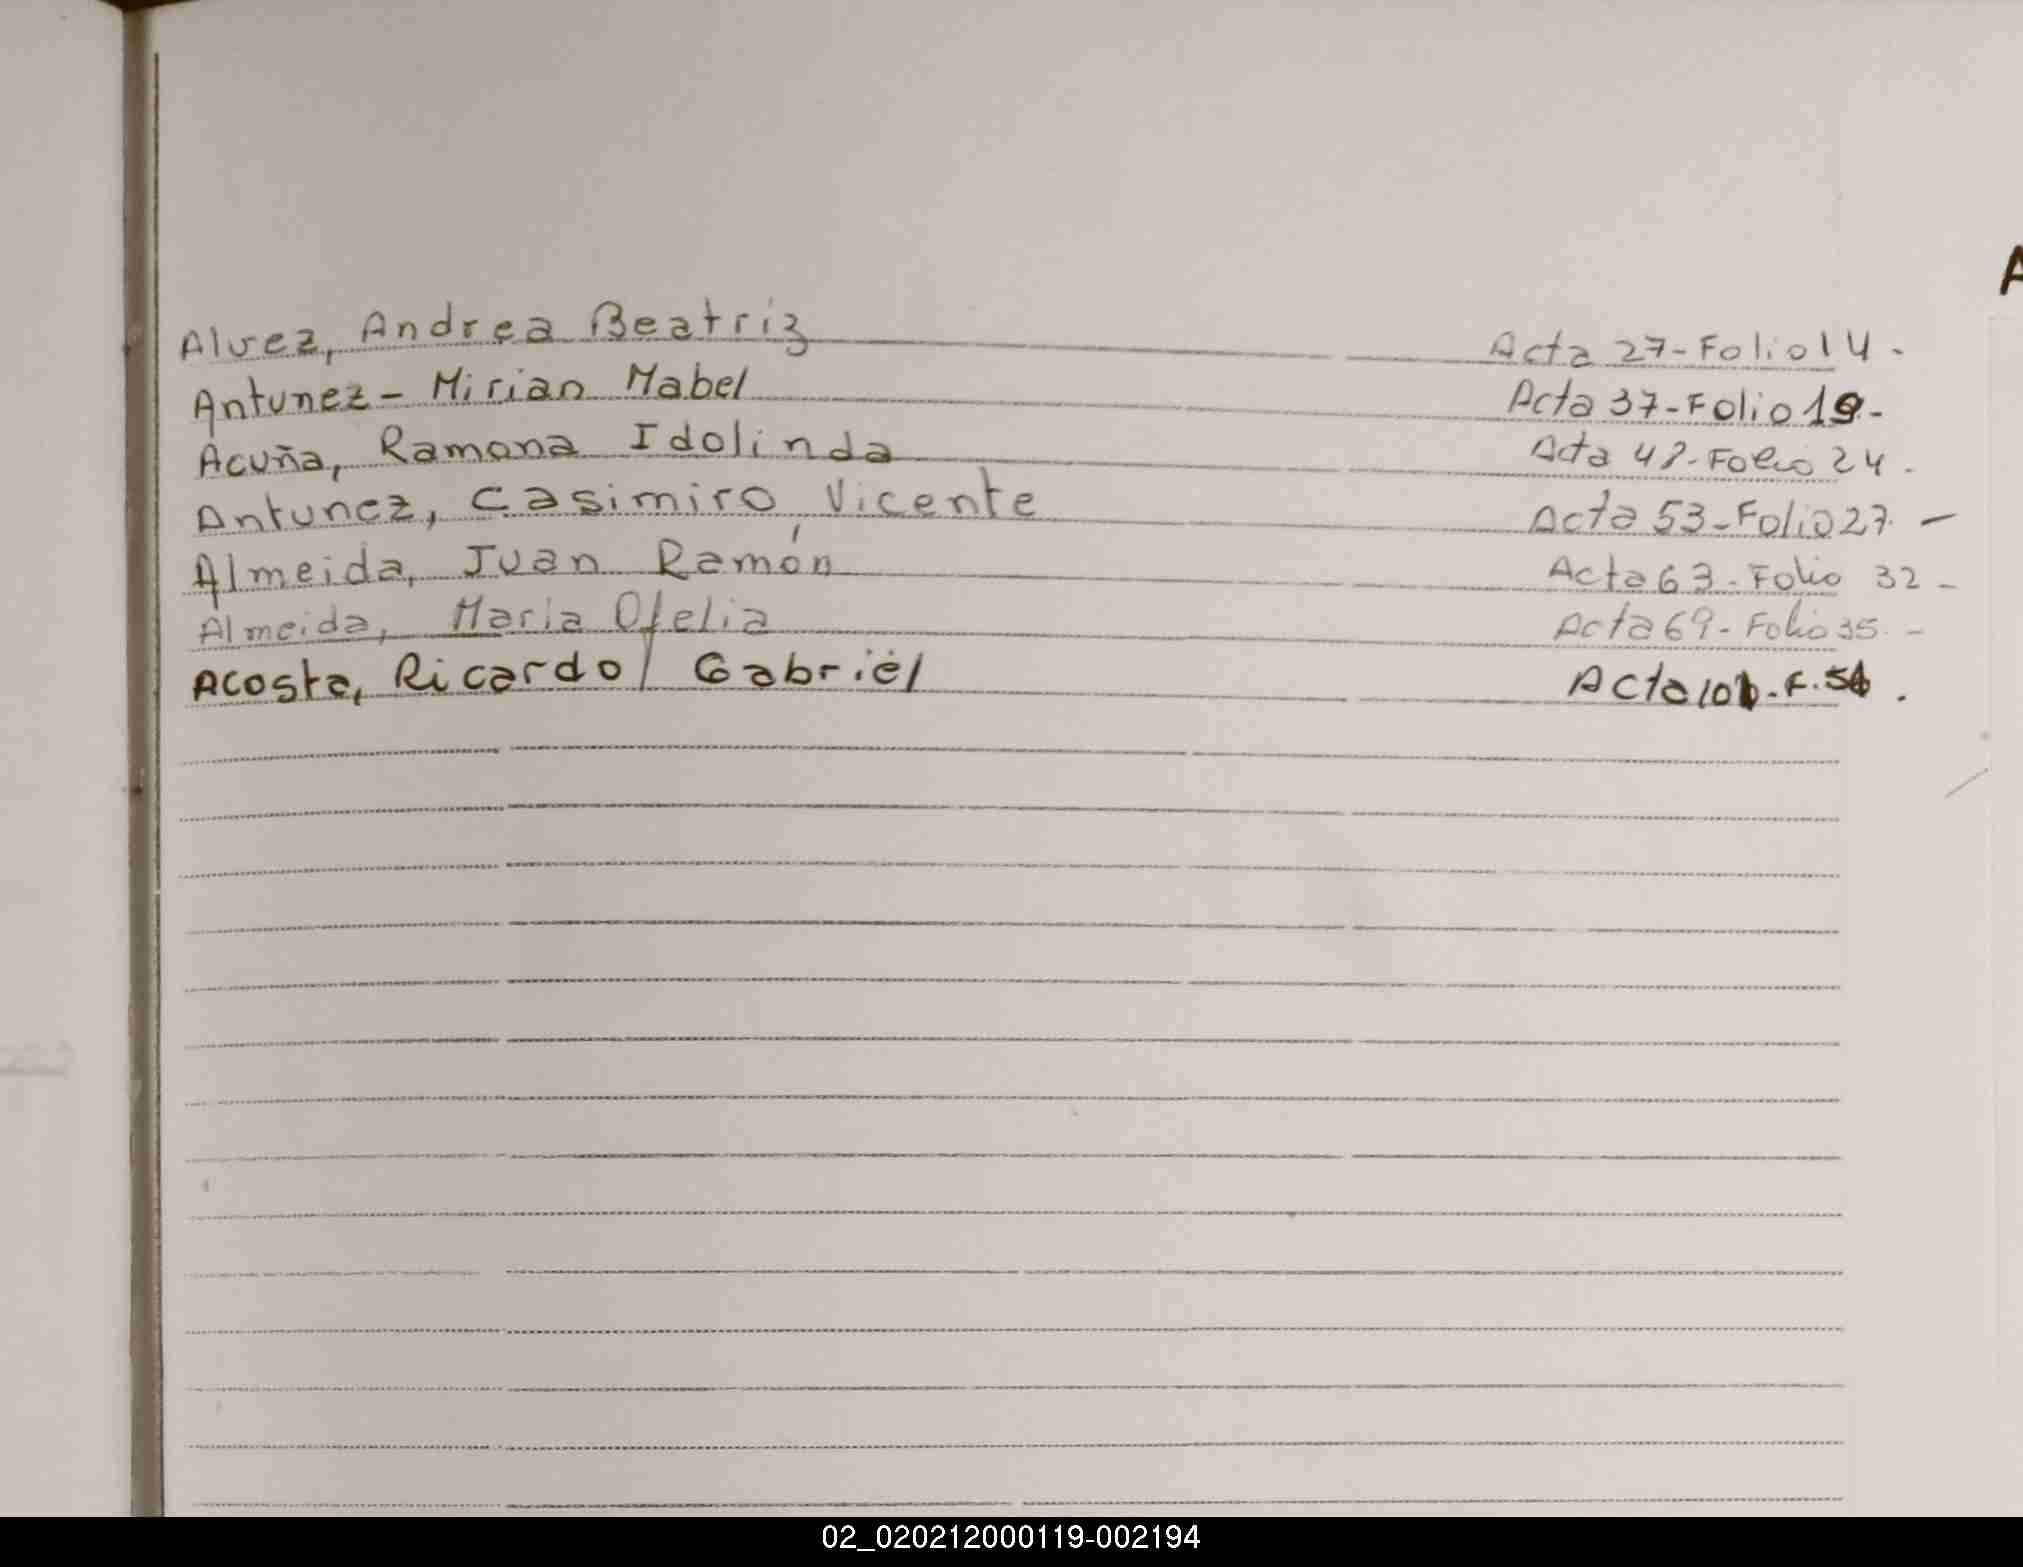 A
Alvez, Andrea Beatriz Acta 27-Folio 14.
Antunez- Mirian Mabel Acta 37-Folio 19-
Acuña, Ramona Idolinda Acta Folio 24.
Antunez, Casimiro, Vicente Acta 53-Folio 27. -
Almeida, Juan Ramón Acta 63-Folio 32-
Almeida, Maria Ofelia Acta 69-Folio 35. -
Acosta, Ricardo Gabriel Acta 101-F.
02_020212000119-002194